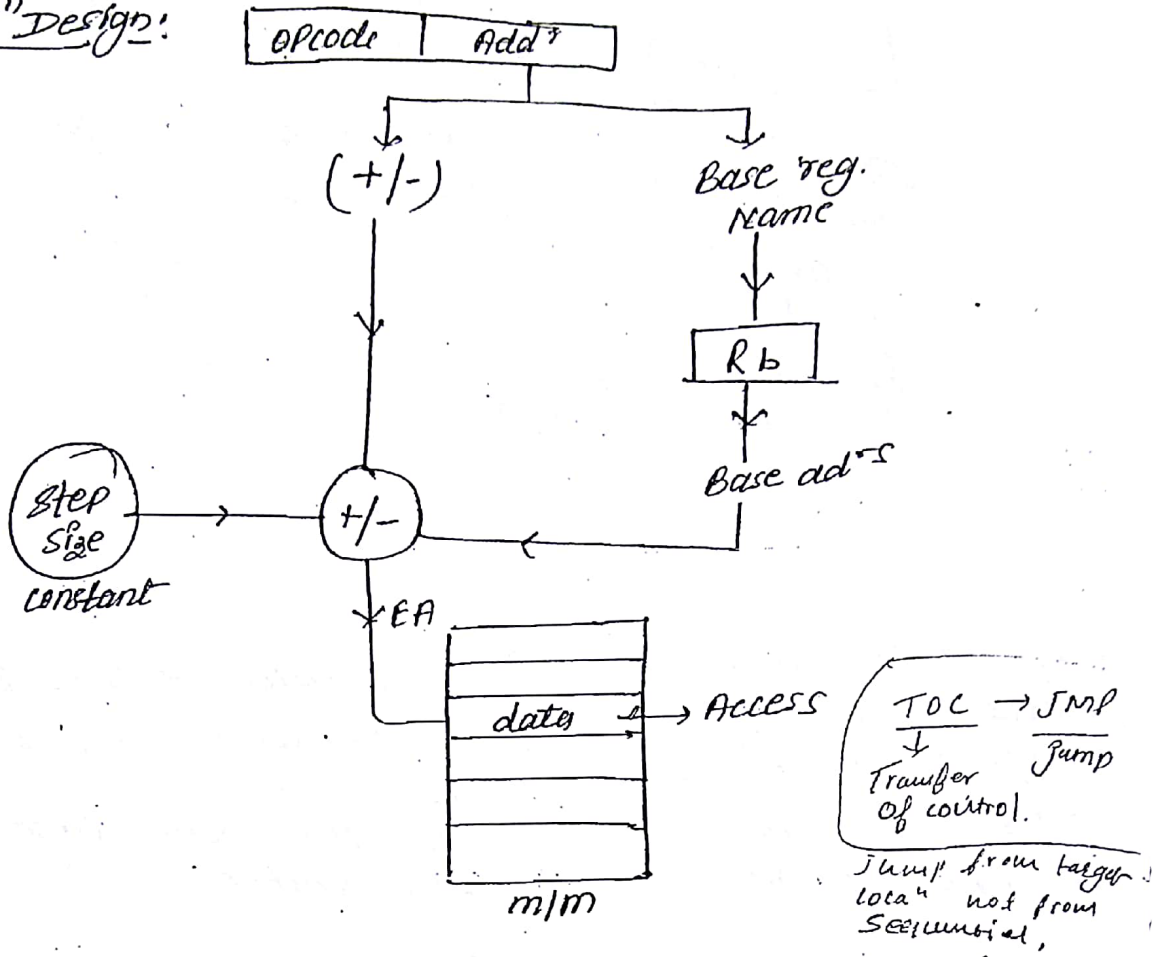 "Design:
OPcode Addr
(+/-)
Base reg.
Name
Rb
Base adrs
Step
Size
constant
+/-
EA
data
Access
m/m
TOC → JMP
Jump
Transfer
of control.
Jump from target
locan not from
Sequential,